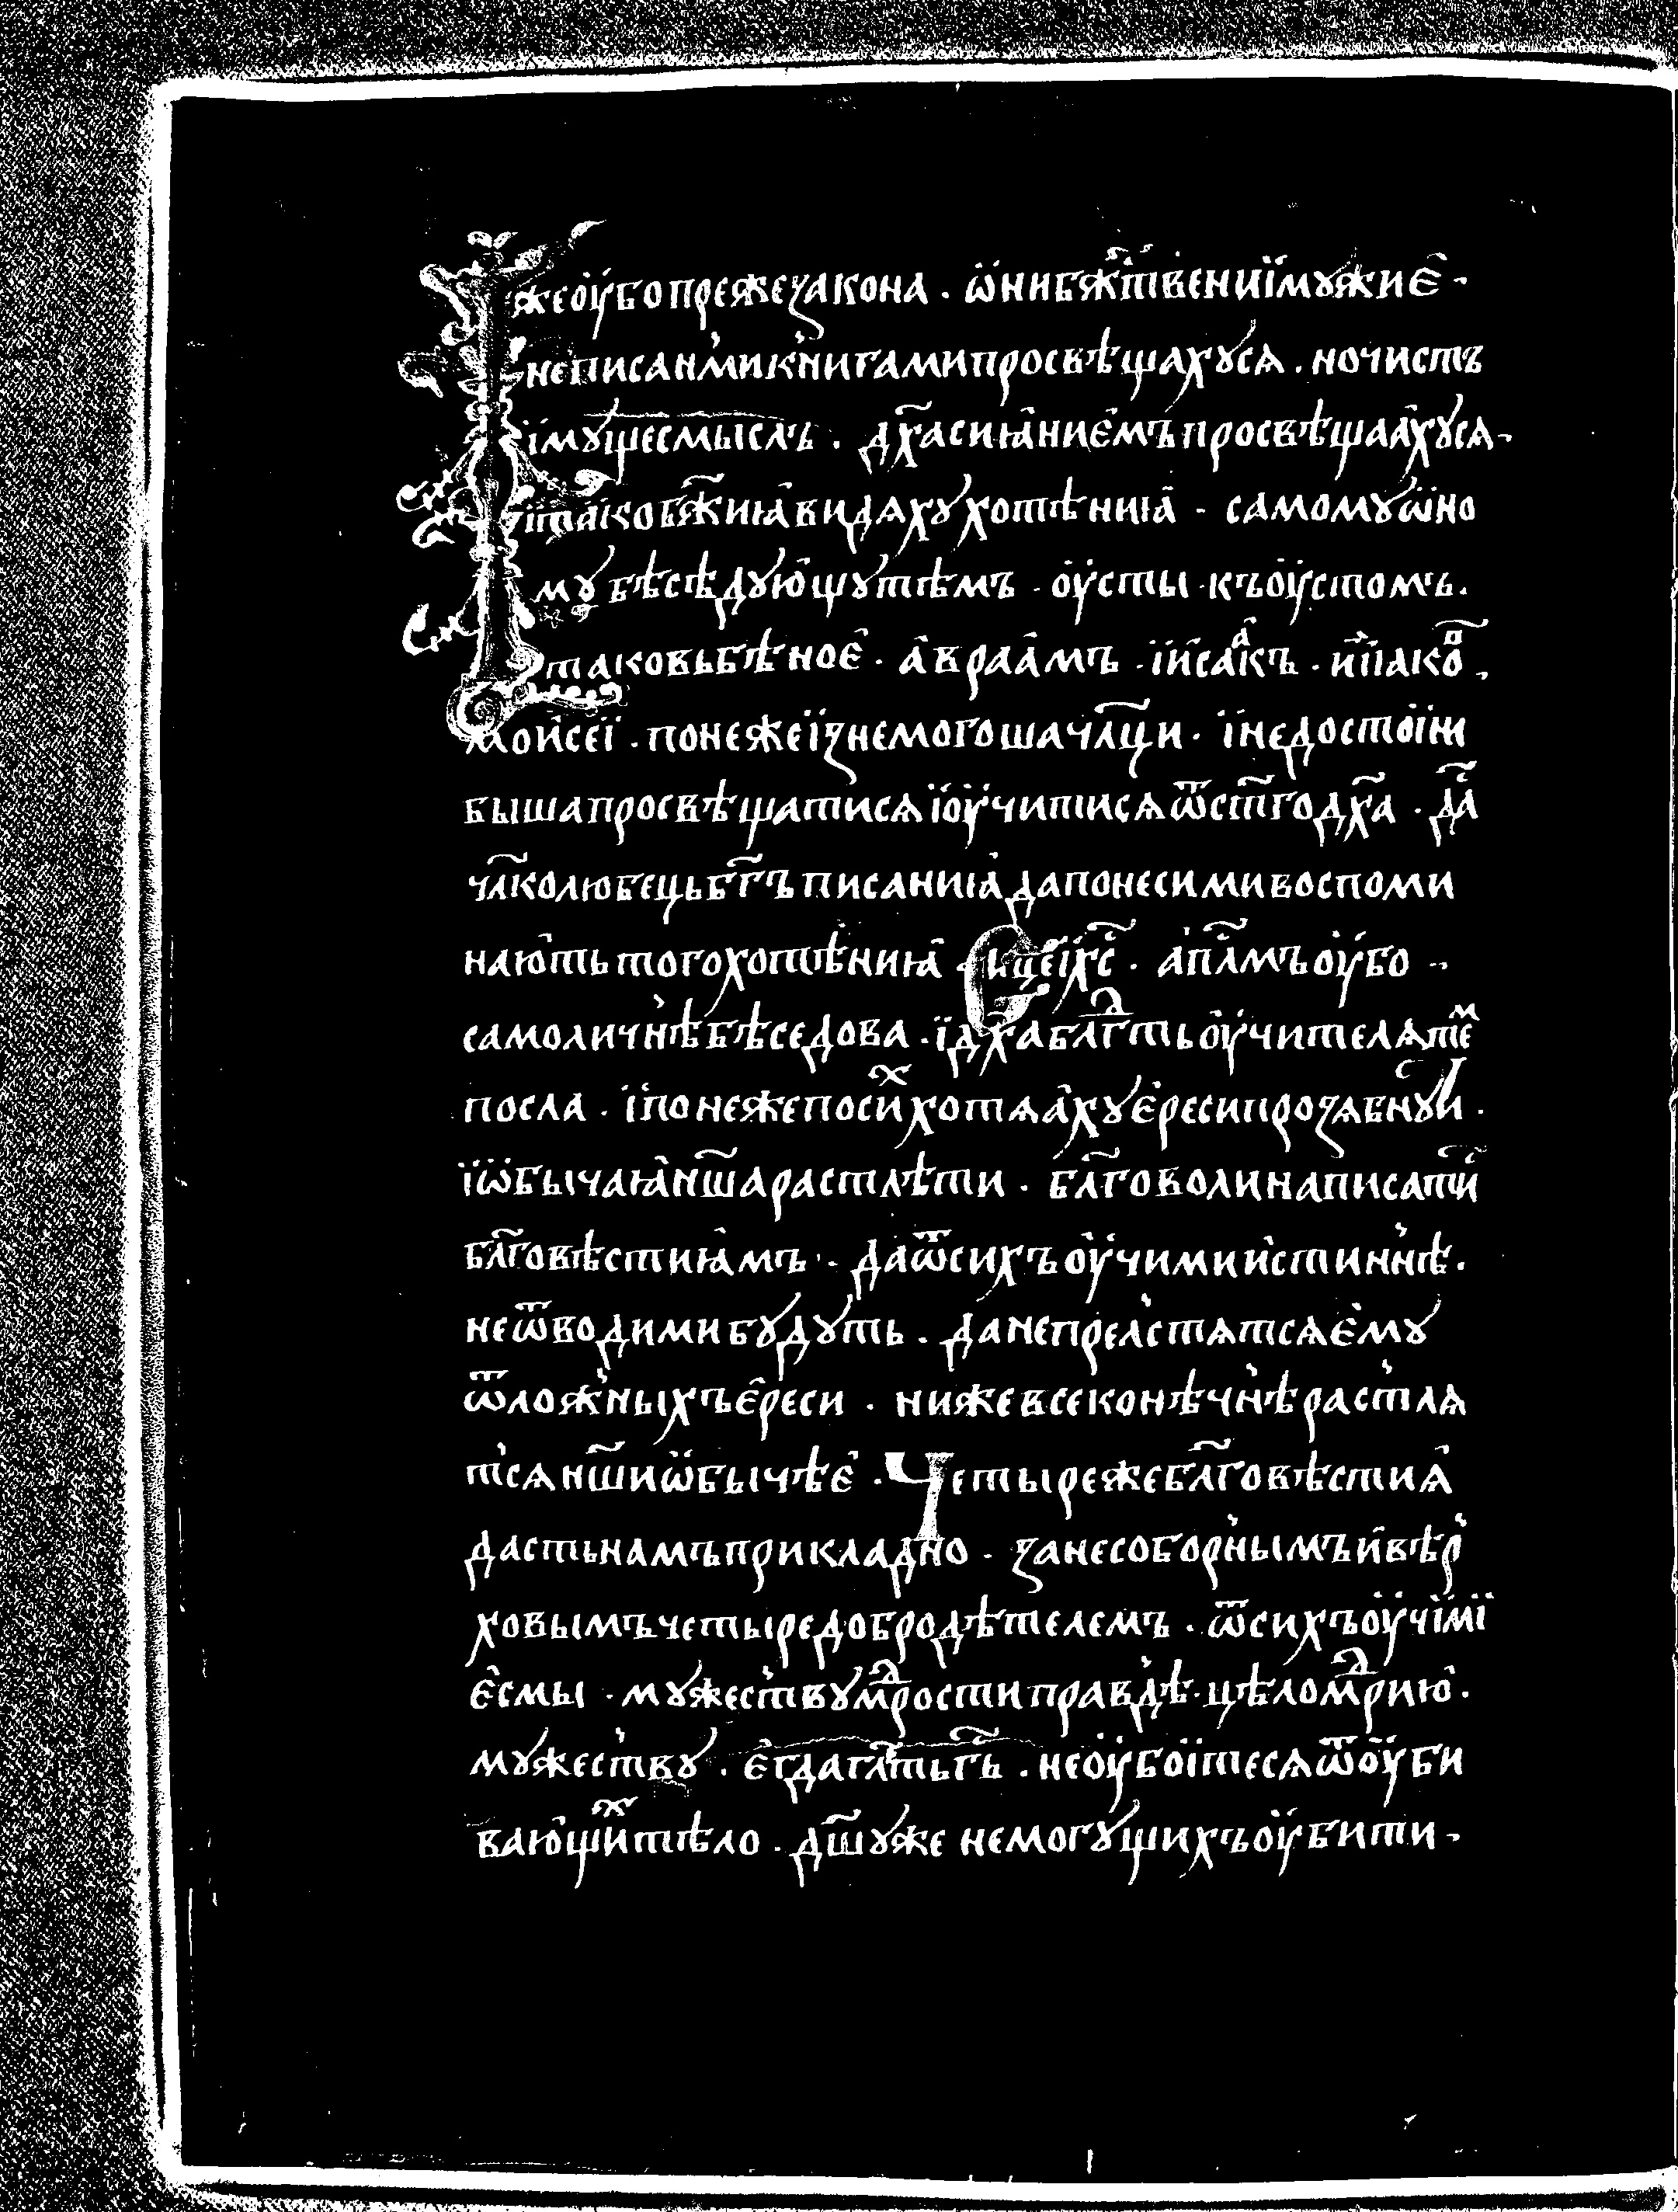 Їжеоу҆бопрежезакона . ѡ҆нибж҃ствениїмужиє҆ ·
неписанмикн҆игамипросвѣщахуся . ночистъ
їмущесмыслъ . дх҃асиꙗ҆ниє҆мъпросвѣщаа҆хуся·
їтакобж҃иꙗ҆видяхухотѣниꙗ҆ · самомуѡ҆но
мубѣсѣдую҆щутѣмъ · оу҆сты · къоу҆стомъ.
таковьбѣноє҆ · а҆враа҆мъ · їи҆саа҆къ · и҆їакоⷡ҇ ·
мои҆сеї . понежеїзнемогошачл҃щи · їнедостоїни
бышапросвѣщатисяїоу҆читисяѿст҃годх҃а · дⷭ҇а
чл҃колюбецьбг҃ъписаниꙗ҆дапонесимивоспоми
наю҆тьтогохотѣниꙗ҆ · Сицеїхс҃ · а҆пл҃мъоу҆бо ·
самоличн҆ѣбѣседова · їдх҃аблⷣгтьоу҆чителятеⷨ
посла · їпонежепосиⷯхотяа҆хує҆ресипрозябнуⷭ҇ти ·
їѡ҆бычаꙗ҆нш҃арастлѣти · бл҃говолинаписатиⷭ҇
бл҃говѣстиꙗ҆мъ · даѿсихъоу҆чимии҆стинн҆ѣ ·
неѿводимибудуть . данепрелс҆тятсяє҆му
ѿложн҆ыхъє҆реси · нижевсеконѣчн҆ѣраст҆ля
тс҆янш҃иѡ҆бычѣє҆ · Четырежебл҃говѣстиꙗ҆
дастьнамъприкладно · занесоборн҆ымъи҆вѣр҆
ховымъчетыредобродѣтелемъ · ѿсихъоу҆чїмї
є҆смы · мужест҆вумⷣростиправдѣ · цѣломⷣрию҆ .
мужест҆ву · є҆гдагл҃тьгь҃ · неоу҆боїтесяѿоу҆би
ваю҆щиⷯтѣло · дш҃уже немогущихъоу҆бити ·